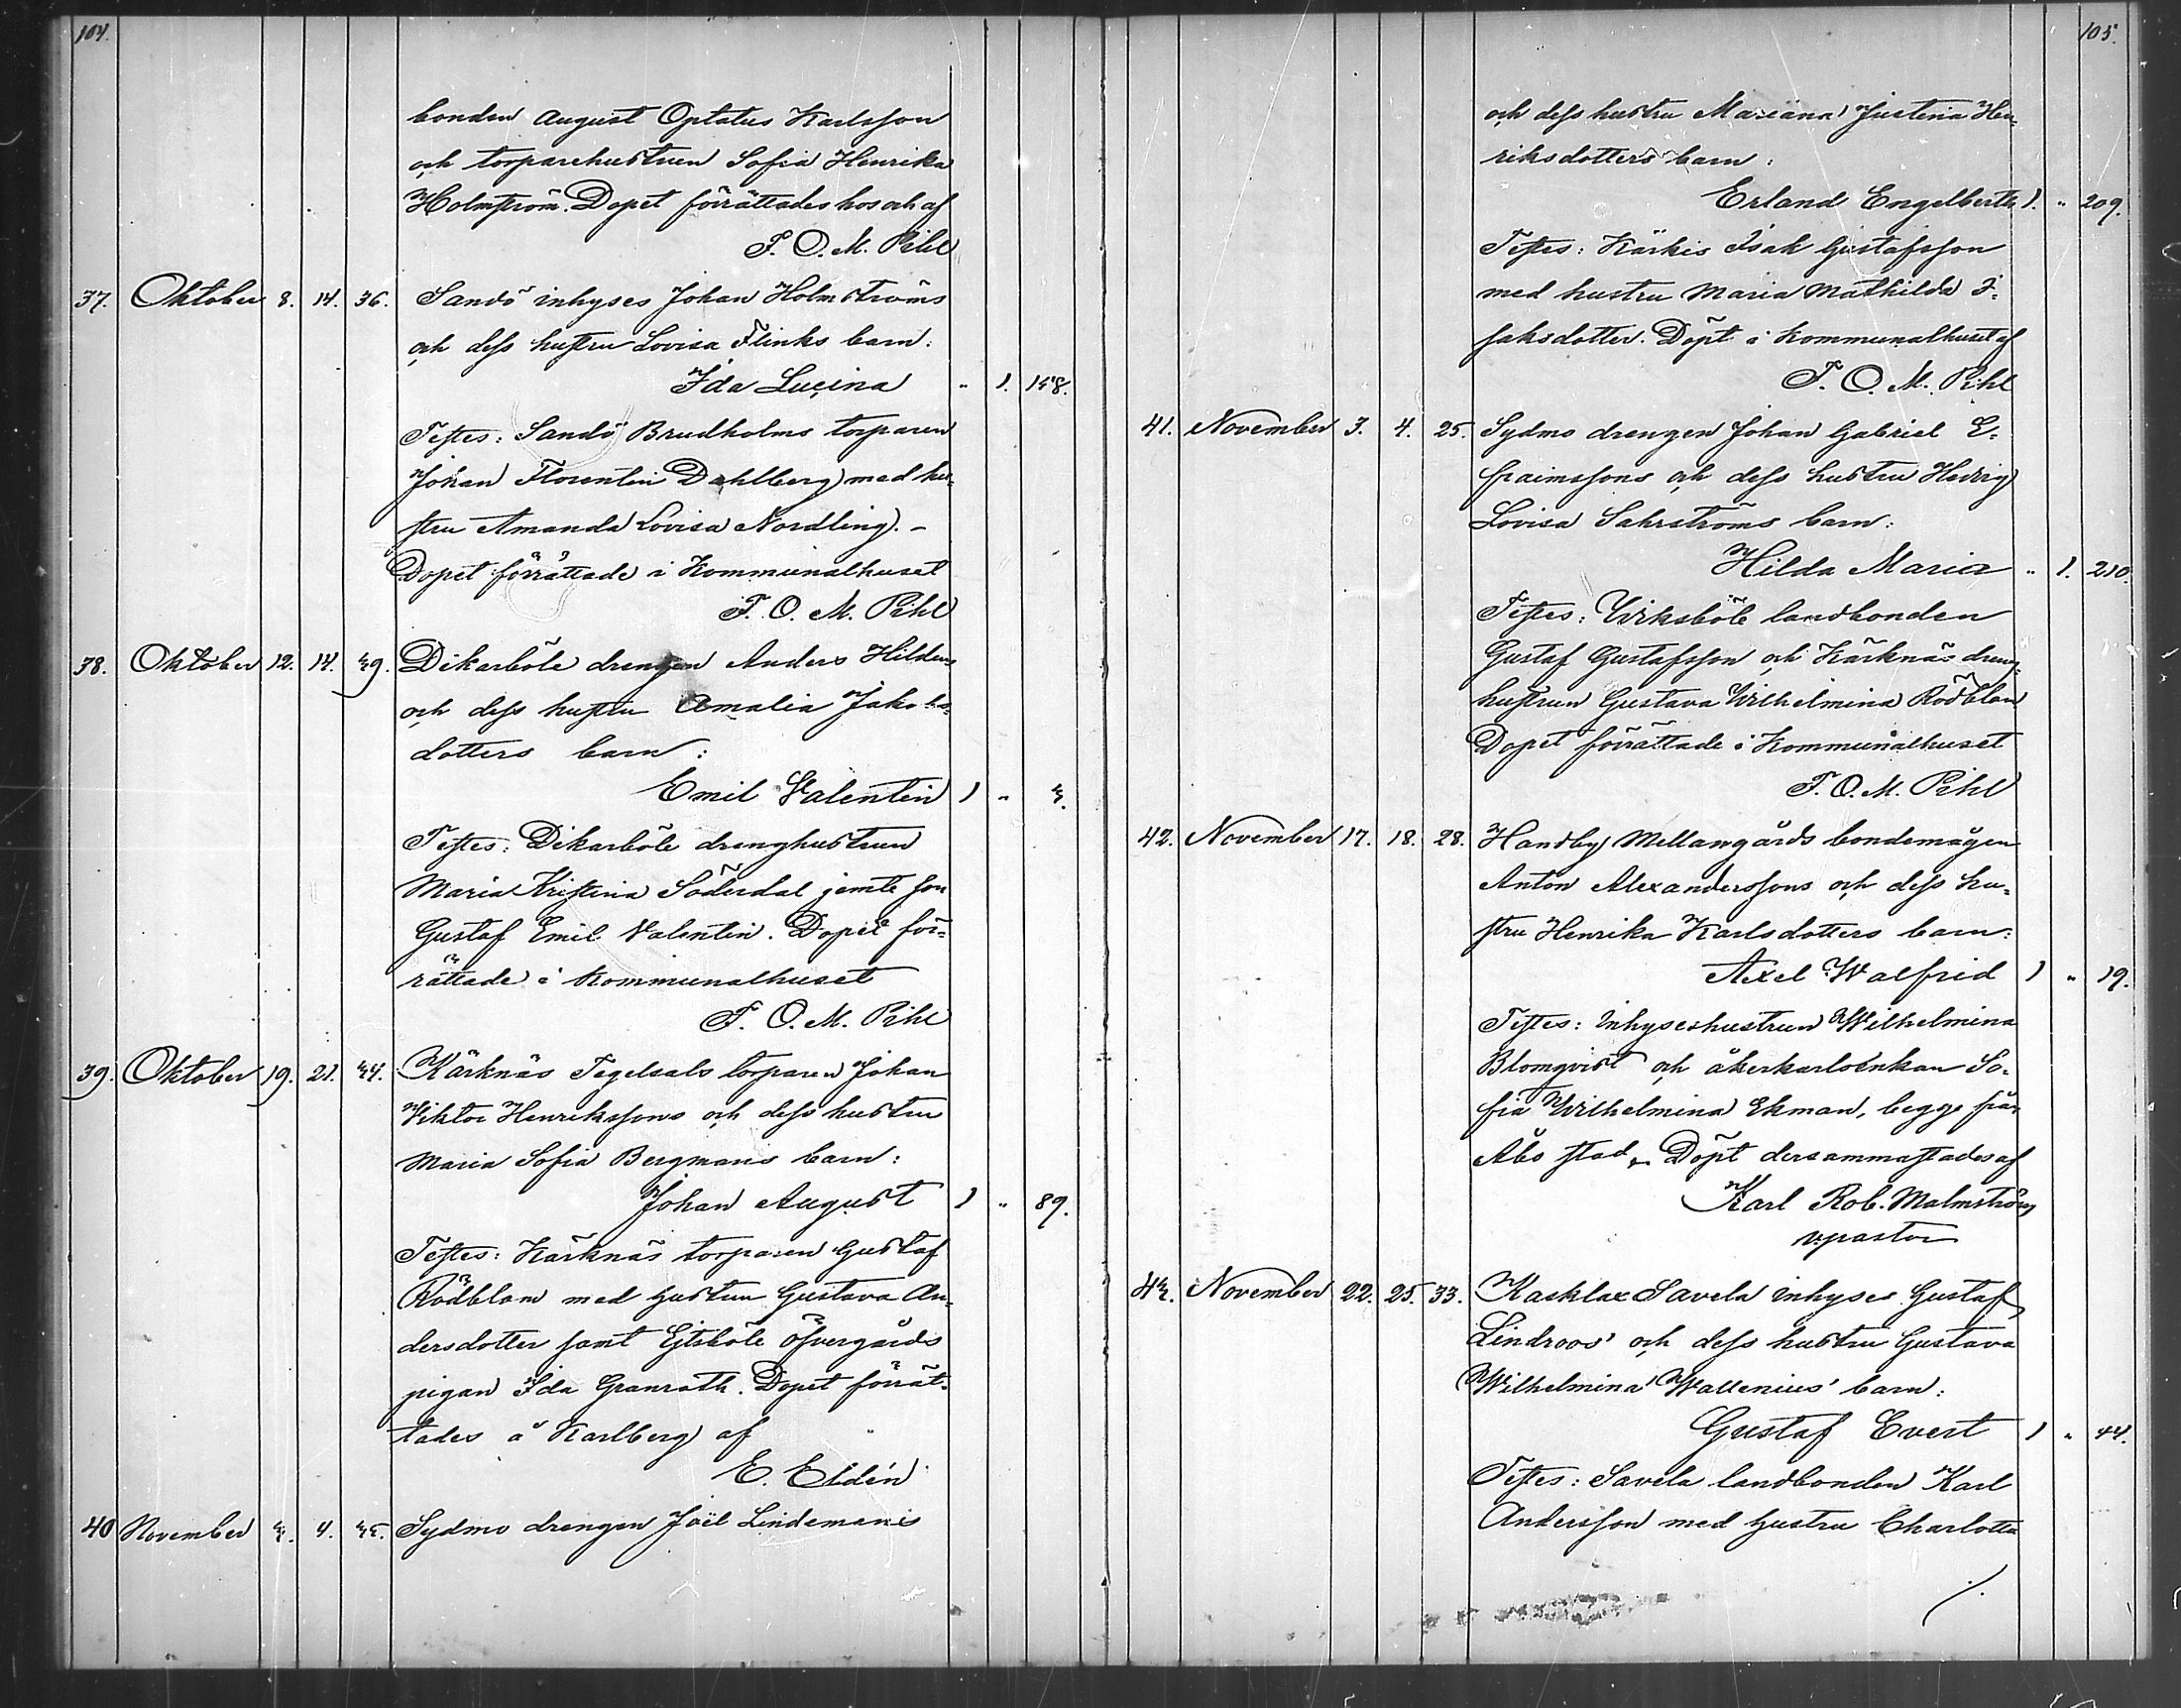 104.
bonden August Optatus Karlsson
och torparehustrun Sofia Henrika
Holmström. Dopet förrättades hos och af
F. O. M. Pihl
37. Oktober 8. 14. 36. Sandö inhyses Johan Holmströms
och dess hustru Lovisa Flinks barn:
Ida Lucina " 1. 158.
Testes: Sandö Brudholms torparen
Johan Florentin Dahlberg med hu-
stru Amanda Lovisa Nordling. –
Dopet förrättade i Kommunalhuset
F. O. M. Pihl
38. Oktober 12. 14. 39. Dikarböle drengen Anders Hildens
och dess hustru Amalia Jakobs-
dotters barn:
Emil Valentin 1 " 3.
Testes: Dikarböle drenghustrun
Maria Kristina Söderdal jemte son
Gustaf Emil Valentin. Dopet för-
rättade i Kommunalhuset
F. O. M. Pihl
39. Oktober 19. 21. 34. Kärknäs Tegelsals torparen Johan
Viktor Henrikssons och dess hustru
Maria Sofia Bergmans barn:
Johan August 1 " 89.
Testes: Kärknäs torparen Gustaf
Rödblom med hustru Gustava An-
dersdotter samt Ejtsböle Öfvergårds
pigan Ida Granroth. Dopet förrät-
tades å Karlberg af
E. Eldén
40 November 3. 4. 35. Sydmo drengen Joël Lindemans
105.
och dess hustru Mariana Justina Hen-
riksdotters barn:
Erland Engelbert 1. " 209.
Testes: Kärkis Isak Gustafsson
med hustru Maria Mathilda I-
saksdotter. Döpt i Kommunalhuset af
F. O. M. Pihl
41. November 3. 4. 25. Sydmo drengen Johan Gabriel E-
fraimssons och dess hustru Hedvig
Lovisa Sahrströms barn:
Hilda Maria " 1. 210.
Testes: Virksböle landbonden
Gustaf Gustafsson och Kärknäs dreng-
hustrun Gustava Wilhelmina Rödblom
Dopet förrättade i Kommunalhuset
F. O. M. Pihl
42. November 17. 18. 28. Handby Mellangårds bondemågen
Anton Alexanderssons och dess hu-
stru Henrika Karlsdotters barn:
Axel Walfrid 1 " 19.
Testes: Inhyseshustrun Wilhelmina
Blomqvist och åkerkarlsenkan So-
fia Wilhelmina Ekman, begge från
Åbo stad. Döpt dersammastades af
Karl Rob. Malmström
v.pastor
43. November 22. 25. 33. Kasklax Savela inhyses Gustaf
Lindroos' och dess hustru Gustava
Wilhelmina Wallenius' barn:
Gustaf Evert 1 " 44.
Testes: Savela landbonden Karl
Andersson med hustru Charlotta
./.